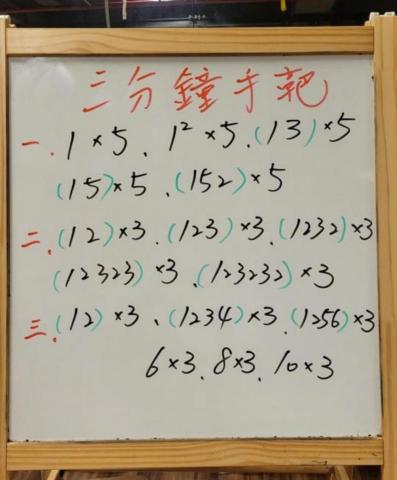 三分鐘手靶
一、1×5、1²×5、(13)×5
(15)×5、(152)×5
二、(12)×3、(123)×3、(1232)×3
(12323)×3、(123232)×3
三、(12)×3、(1234)×3、(1256)×3
6×3、8×3、10×3